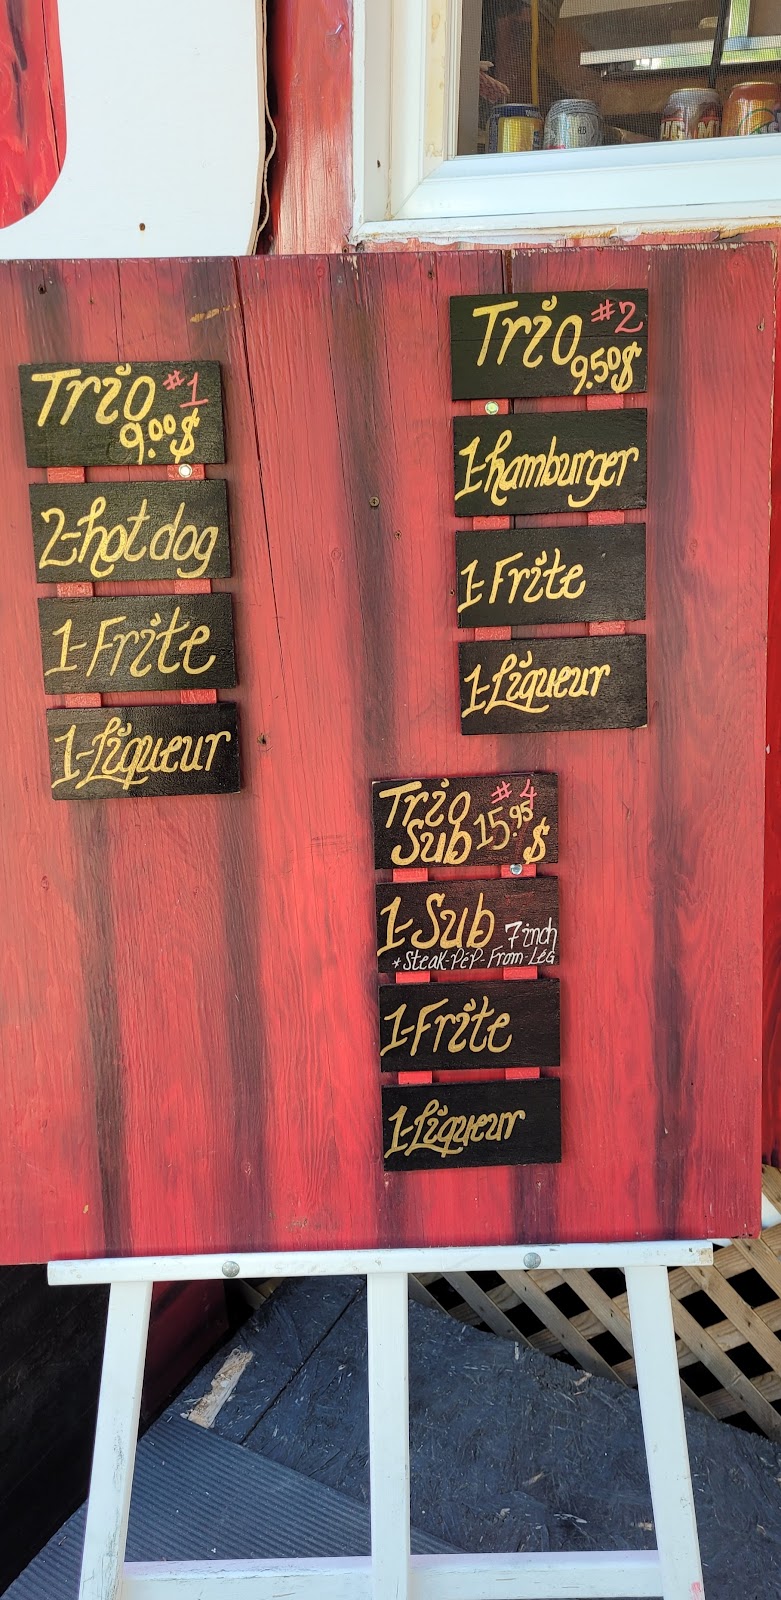 Trio #1
9.00$
2-hot dog
1-Frite
1-Liqueur
Trio #2
9.50$
1-hamburger
1-Frite
1-Liqueur
Trio #4
Sub 15.95$
1-Sub 7 inch
*Steak-Pep-From-Leg
1-Frite
1-Liqueur